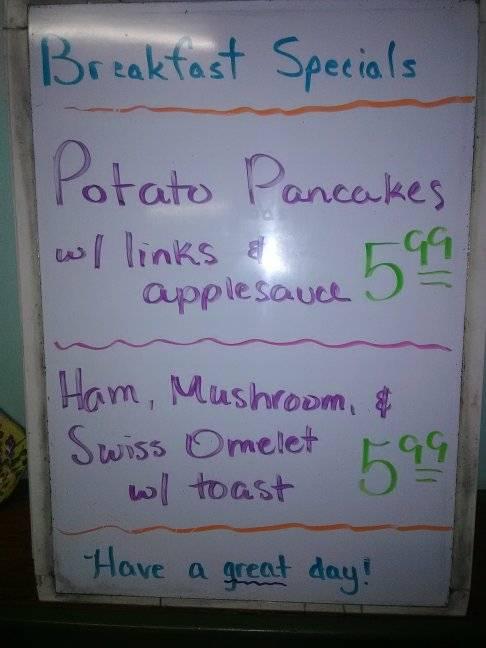 Breakfast Specials
Potato Pancakes
w/ links &
applesauce 5.99
Ham, Mushroom, &
Swiss Omelet
w/ toast 5.99
Have a great day!